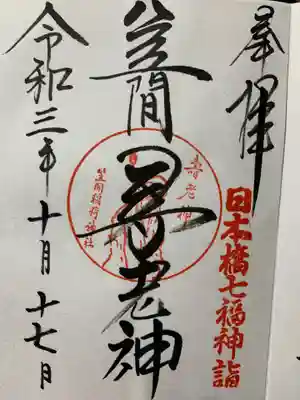 奉拝
日本橋七福神詣
笠間
寿老神
壽老神
笠間稲荷神社
令和三年十月十七日